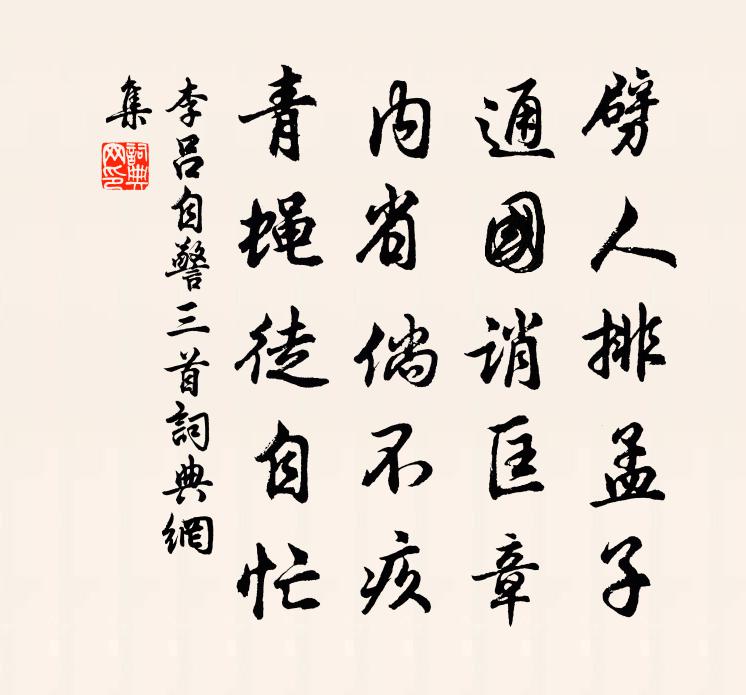 劈人排孟子
通國誚匡章
内省倘不疚
青蝇徒自忙
李吕自警三首詞典網
集
詞典
网印